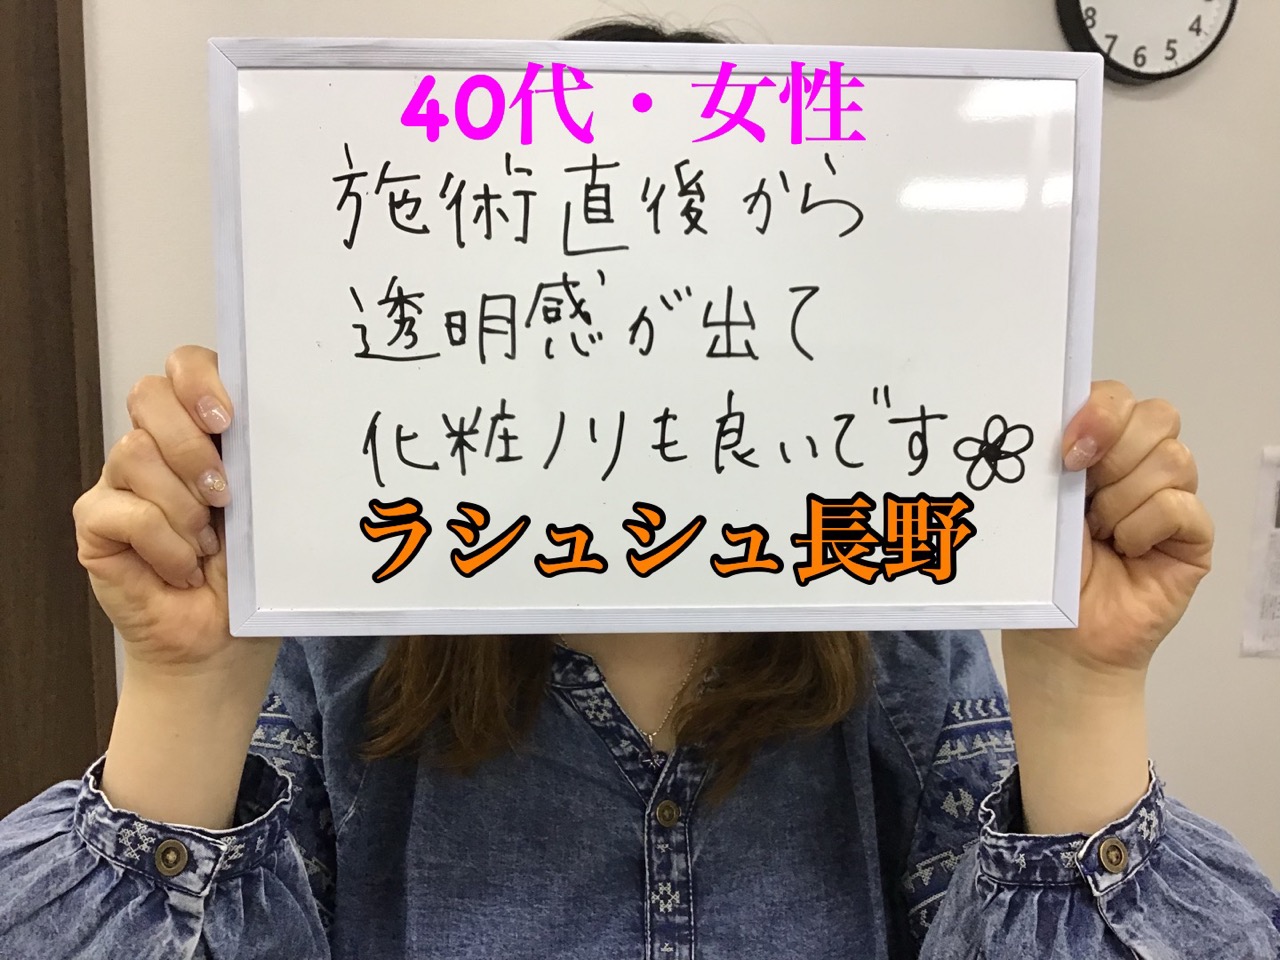 40代・女性
施術直後から
透明感が出て
化粧ノリも良いです
ラシュシュ長野
8 7 6 5 4